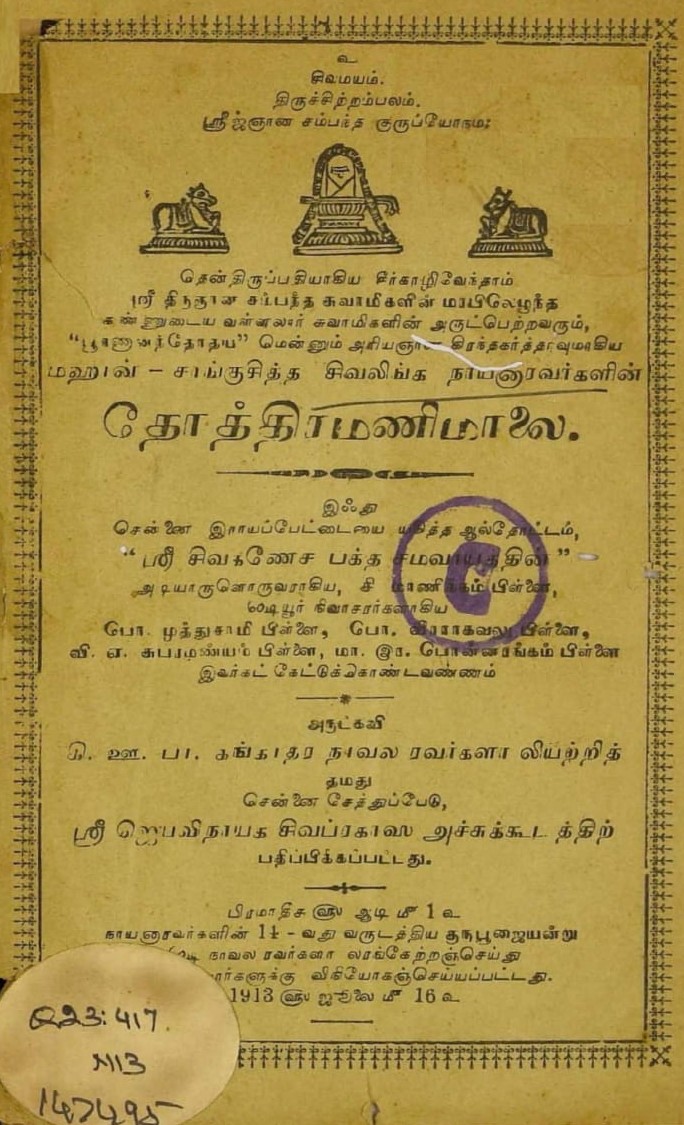 உ
சிவமயம்.
திருச்சிற்றம்பலம்.
ஸ்ரீஜ்ஞான சம்பந்த குருப்யோநம:
தென்திருப்பதியாகிய சீர்காழிவேந்தாம்
ஸ்ரீ திருஞான சம்பந்த சுவாமிகளின் மரபிலெழுந்த
கண்ணுடைய வள்ளலார் சுவாமிகளின் அருட்பெற்றவரும்,
"பூரணானந்தோதய" மென்னும் அரியஞான கிரந்தகர்த்தாவுமாகிய
மஹான் - சாங்குசித்த சிவலிங்க நாயனாரவர்களின்
தோத்திரமணிமாலை.
இஃது
சென்னை இராயப்பேட்டையை யடுத்த ஆல்தோட்டம்,
"ஸ்ரீ சிவகணேச பக்த சமவாயத்தின்"
அடியாருளொருவராகிய, சி மாணிக்கம் பிள்ளை,
ஷெயூர் நிவாசரர்களாகிய
போ. முத்துசாமி பிள்ளை, போ. வீரராகவலு பிள்ளை,
வி. ஏ. சுபரமண்யம் பிள்ளை, மா. இர. பொன்னரங்கம் பிள்ளை
இவர்கட் கேட்டுக்கொண்டவண்ணம்
அருட்கவி
ஊ. பா. கங்காதர நாவல ரவர்களா லியற்றித்
தமது
சென்னை சேத்துப்பேடு,
ஸ்ரீ ஜெபவிநாயக சிவப்ரகாஸ அச்சுக்கூட த்திற்
பதிப்பிக்கப்பட்டது.
பிரமாதீச ௵ ஆடி ௴ 1 உ
நாயனாரவர்களின் 14 - வது வருடத்திய குருபூஜையன்று
நாவல ரவர்களா லரங்கேற்றஞ்செய்து
விநியோகஞ்செய்யப்பட்டது.
1913 ௵ ஜூலை ௴ 16 உ
Q23:417
N13
147495